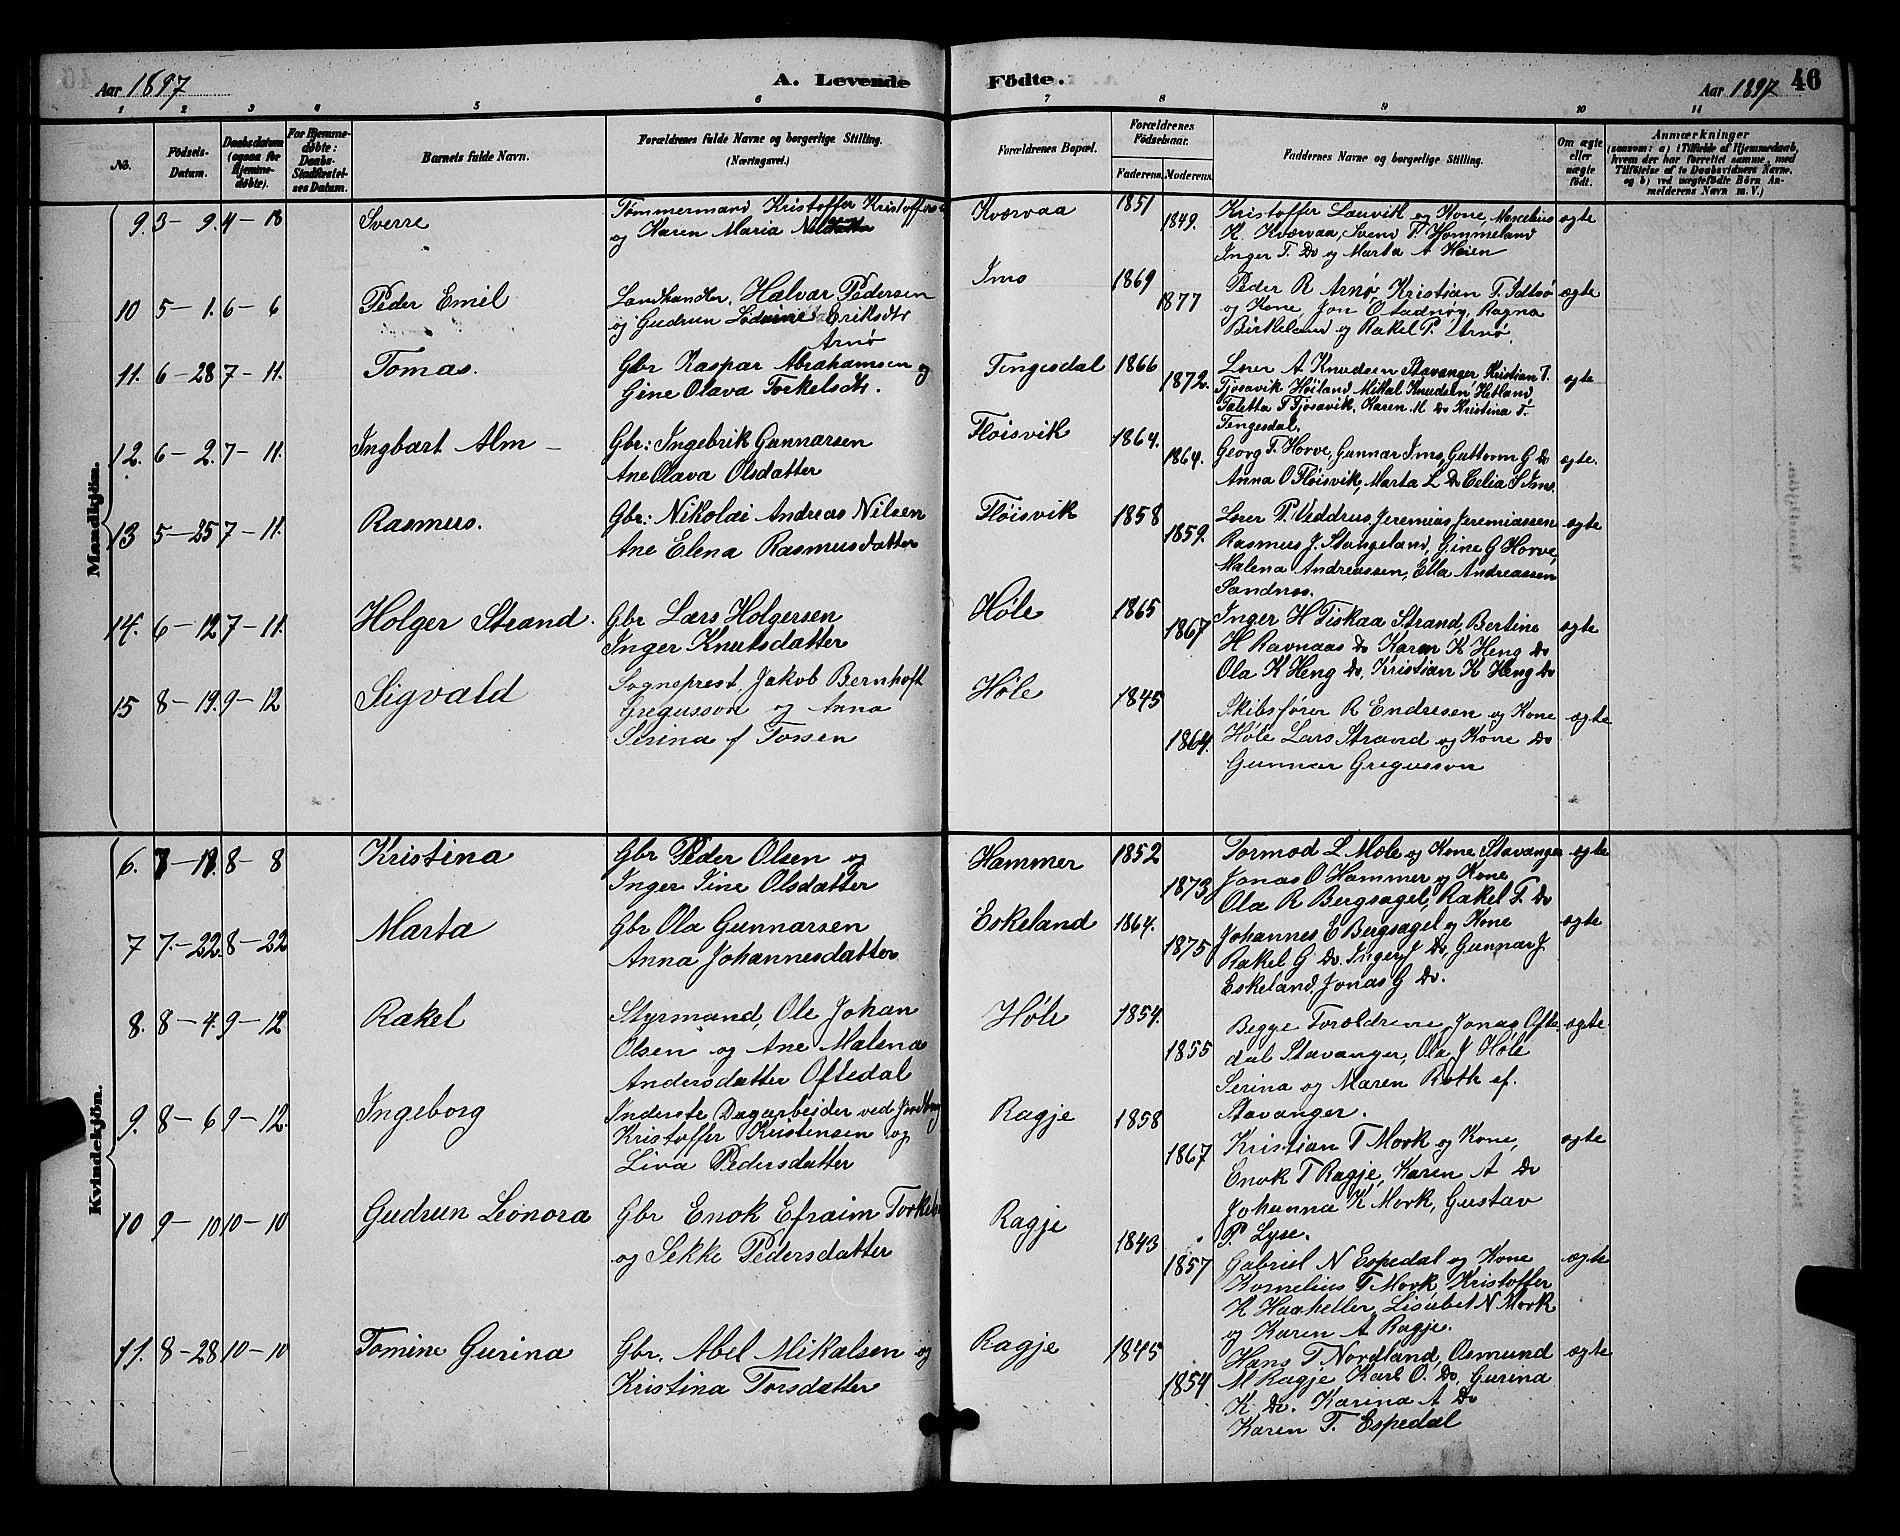 Aar 1897 A. Levende Födte. Aar 1897 46
1 2 3 4 5 6 7 8 9 10 11
No. Födsels-Datum. Daabsdatum (ogsaa for Hjemmedöbte). For Hjemmedöbte: Daabs-Stadfæstelses Datum. Barnets fulde Navn. Forældrenes fulde Navne og borgerlige Stilling. (Næringsvei.) Forældrenes Bopæl. Forældrenes Födselsaar. Faderens. Moderens. Faddernes Navne og borgerlige Stilling. Om ægte eller uægte födt. Anmærkninger (saasom: a) i Tilfælde af Hjemmedaab, hvem der har forrettet samme, med Tilföielse af to Daabsvidners Navne, og b) ved uægtefödte Börn Anmelderens Navn m. V.)
Mandkjön.
9. 3-9. 4-18 Sverre
Tømmermand Kristoffer
og Karen Maria
Kværvaa 1851 1849.
Kristoffer Lauvik og Kone,
K. Kværvaa, Svend T. Hommeland
Inger T. Do og Marta A Høien
ægte
10 5-1. 6-6 Peder Emil
Landhandler, Halvar Pedersen
og Gudrun Eriksdtr
Arnø
Ims 1869 1877
Peder R Arnø, Kristian T. Idtsø
og Kone Jon O Ragna
Birkeland og Rakel P. Arnø.
ægte
11. 6-28 7-11. Tomas.
Gbr Kaspar Abrahamsen og
Gine Olava Torkelsdtr.
Tengesdal 1866 1872.
Lærer A Knudsen Stavanger, Kristian T.
Tjosavik Høiland Mikal Knudsen Hetland,
Taletta T Tjosavik, Karen M Do Kristina T.
Tengesdal.
ægte
12. 6-2. 7-11. Ingbart Alm -
Gbr: Ingebrik Gunnarsen
Ane Olava Olsdatter
Fløisvik 1864. 1864.
Georg T. Horve, Gunnar Ims, Guttorm G Do
Anna O Fløisvik, Marta L Do Celia S Ims.
ægte.
13 5-25 7-11. Rasmus.
Gbr: Nikolai Andreas Nilsen
Ane Elena Rasmusdatter
Fløisvik 1858 1859.
Lærer P. Veddrus, Jeremias Jeremiassen
Rasmus J. Stangeland, Gine G Horve,
Malena Andreassen, Ella Andreassen
Sandnæs.
ægte
14. 6-12 7-11. Holger Strand.
Gbr Lars Holgersen
Inger Knutsdatter
Høle 1865 1867
Inger H Fiskaa Strand, Bertine
H Ravnaas Do Karen K Heng Do
Ola K Heng Do, Kristian K Heng Do
ægte
15 8-19. 9-12 Sigvald
Sogneprest, Jakob Bernhoft
Gregusson og Anna
Serina f Tossen
Høle 1845 1864.
Skibsfører R Endresen og Kone
Høle Lars Strand og Kone Do
Gunnar Gregusson
ægte
Kvindekjön.
6. 7-18. 8-8 Kristina
Gbr Peder Olsen og
Inger Tine Olsdatter
Hammer 1852 1873
Tormod L Mæle og Kone Stavanger
Jonas O Hammer og Kone
Ola R Bergsagel, Rakel T. Do
ægte
7 7-22. 8-22 Marta
Gbr Ola Gunnarsen
Anna Johannesdatter
Eskeland 1864. 1875
Johannes E Bergsagel og Kone
Rakel G Do. Inger J Do, Gunnar J.
Eskeland, Jonas G Do.
ægte
8. 8-4. 9-12 Rakel
Styrmand, Ole Johan
Olsen og Ane Malena
Andersdatter Oftedal
Høle 1854. 1855
Begge Forældrene Jonas Ofte-
dal Stavanger, Ola J Høle
Serina og Maren Roth af.
Stavanger.
ægte.
9. 8-6 9-12. Ingeborg
Inderste Dagarbeider ved Jordbrug
Kristoffer Kristensen og
Liva Pedersdatter
Ragje 1858 1867
Kristian T Mork og Kone,
Enok T Ragje, Karen A Do
Johanna K Mork, Gustav
P. Lyse.
ægte
10 9-10 10-10 Gudrun Leonora
Gbr Enok Efraim
og Sekke Pedersdatter
Ragje 1843 1857
Gabriel N Espedal og Kone
Kornelius T Mork, Kristoffer
K Haaheller, Lisabet N Mork
og Karen A Ragje.
ægte
11. 8-28 10-10 Tomine Gurina
Gbr. Abel Mikalsen og
Kristina Torsdatter
Ragje 1845 1854
Hans T Nordland, Osmund
M Ragje Karl O. Do, Gurina
K Do. Karina A Do
Karen T. Espedal
ægte